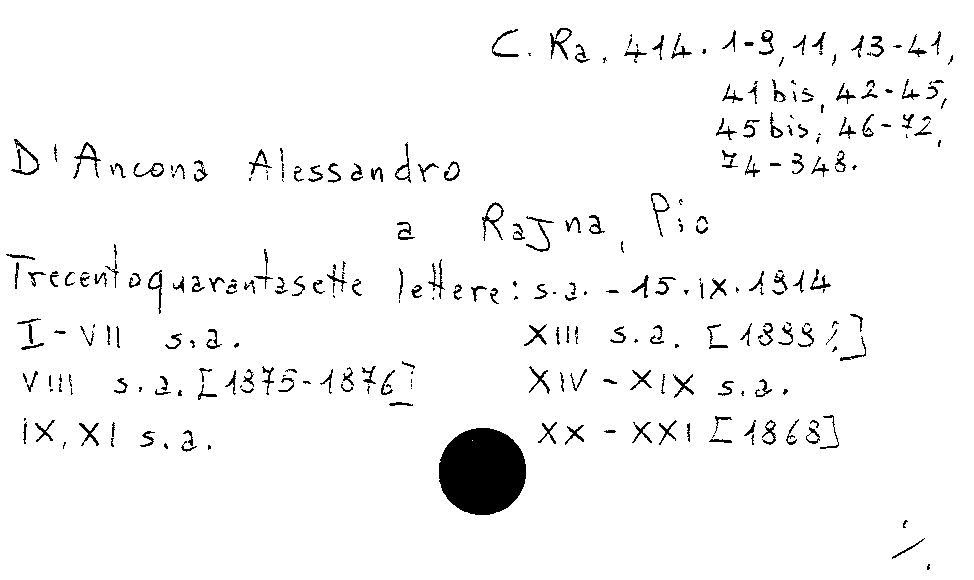 C. Ra. 414. 1-9, 11, 13-41,
41 bis, 42-45,
45 bis, 46-72,
74-348.
D'Ancona Alessandro
a Rajna, Pio
Trecentoquarantasette lettere: s.a. - 15.IX.1914
I-VII s.a.
VIII s.a. [1875-1876]
IX, XI s.a.
XIII s.a. [1899?]
XIV - XIX s.a.
XX - XXI [1868]
./.